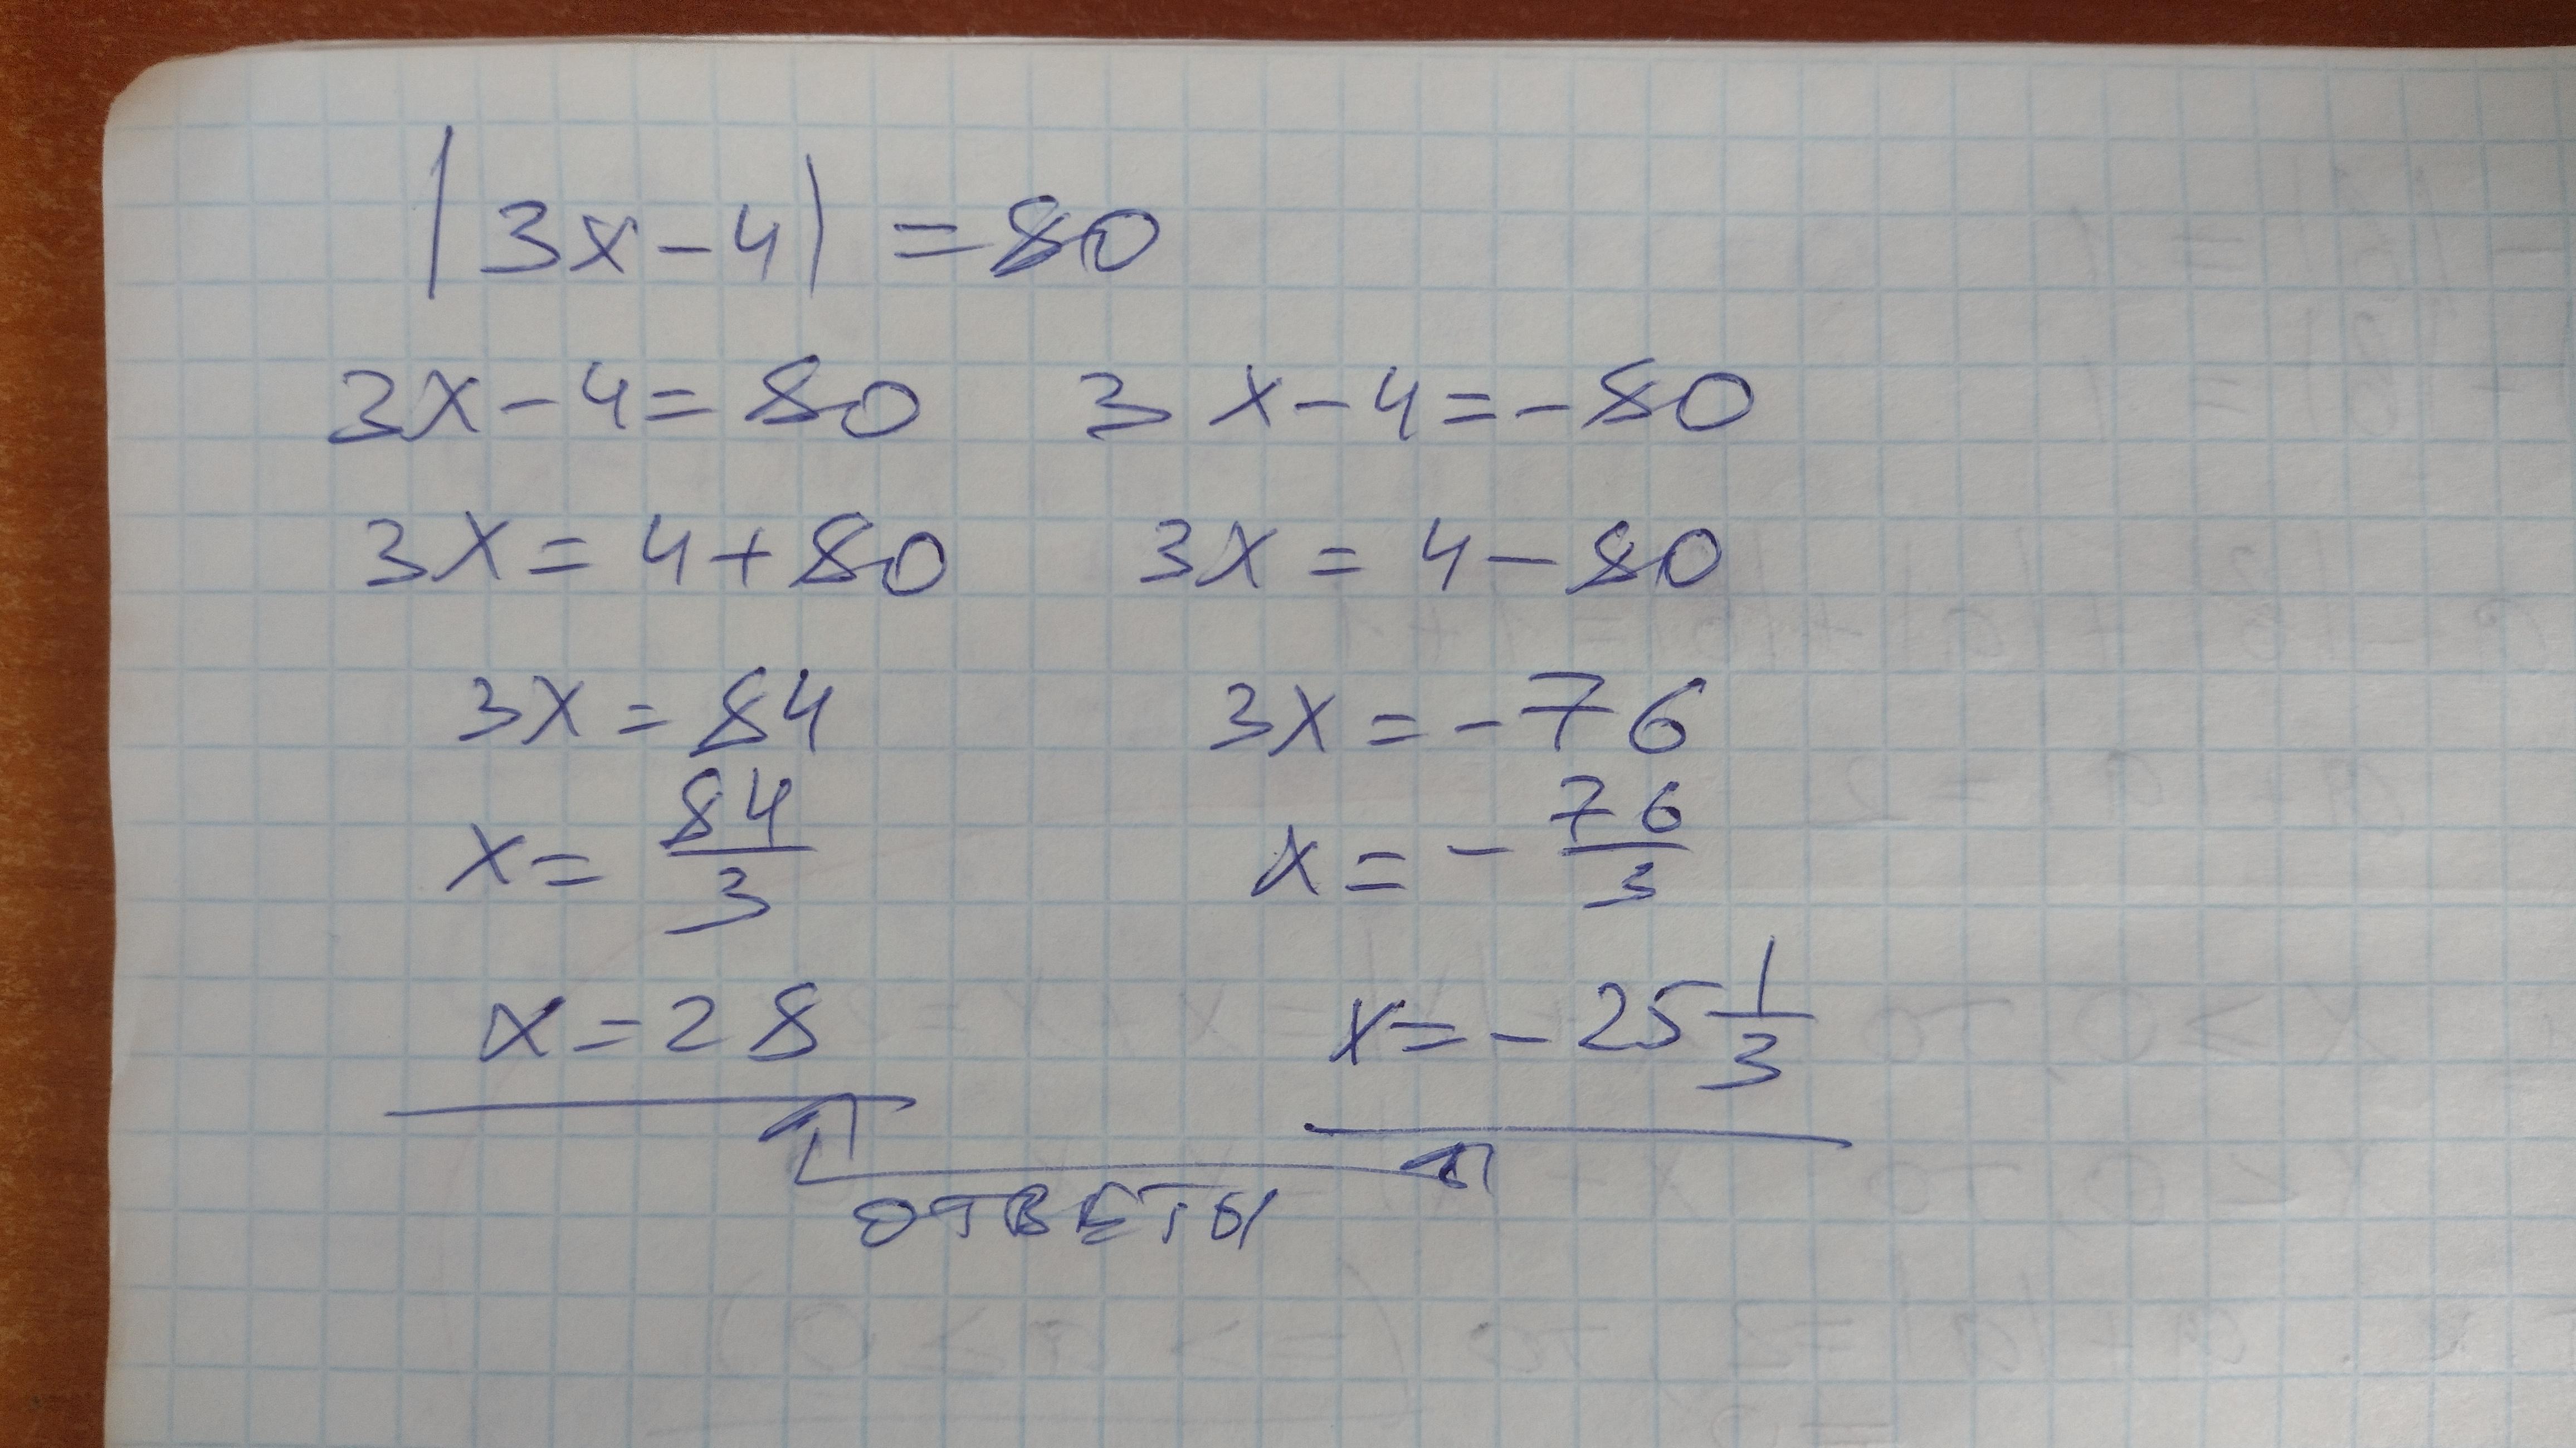 |3x-4| = 80
3x-4=80 3x-4=-80
3x=4+80 3x=4-80
3x=84 3x=-76
x=84/3 x=-76/3
x=28 x=-25 1/3
ОТВЕТЫ